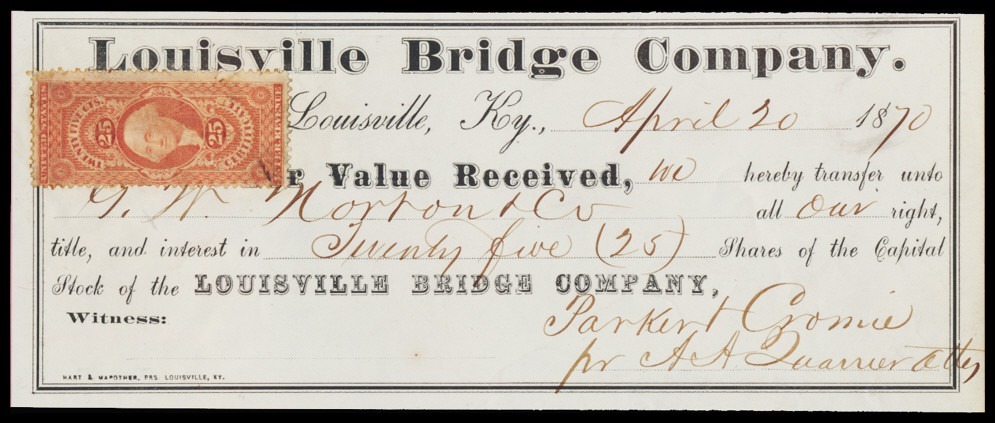 Louisville Bridge Company.
UNITED STATES
TWENTY FIVE CENTS
25 25
INTER. REVENUE
Louisville, Ky., April 20 1870
r Value Received, we hereby transfer unto
G. W. Norton & Co all Our right,
title, and interest in Twenty five (25) Shares of the Capital
Stock of the LOUISVILLE BRIDGE COMPANY,
Witness:
Parker & Cromie
pr A A Quarrier Atty
HART & MAPOTHER, PRS. LOUISVILLE, KY.